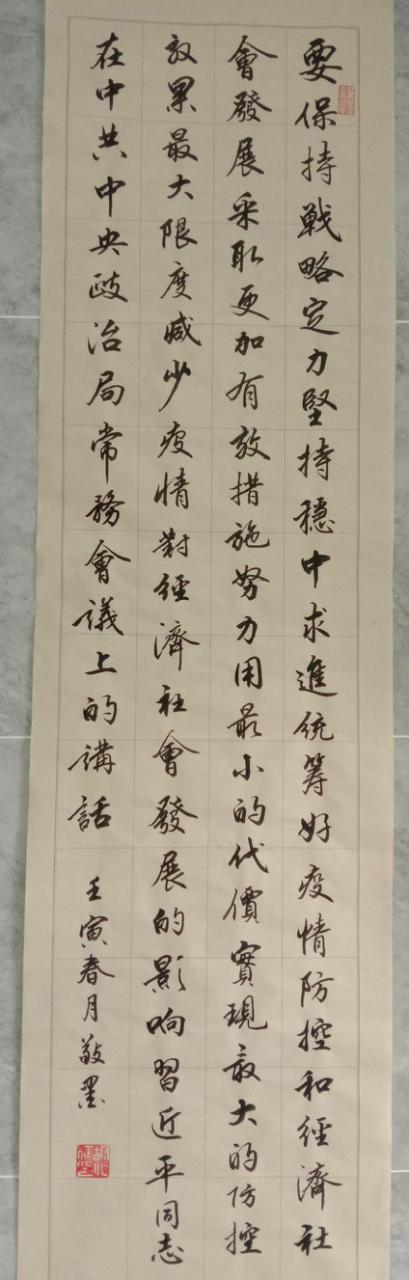 要保持戰略定力堅持穩中求進統筹好疫情防控和經濟社
會發展采取更加有效措施努力用最小的代價實現最大的防控
效果最大限度减少疫情對經濟社會發展的影响習近平同志
在中共中央政治局常務會議上的講話
壬寅春月敬墨